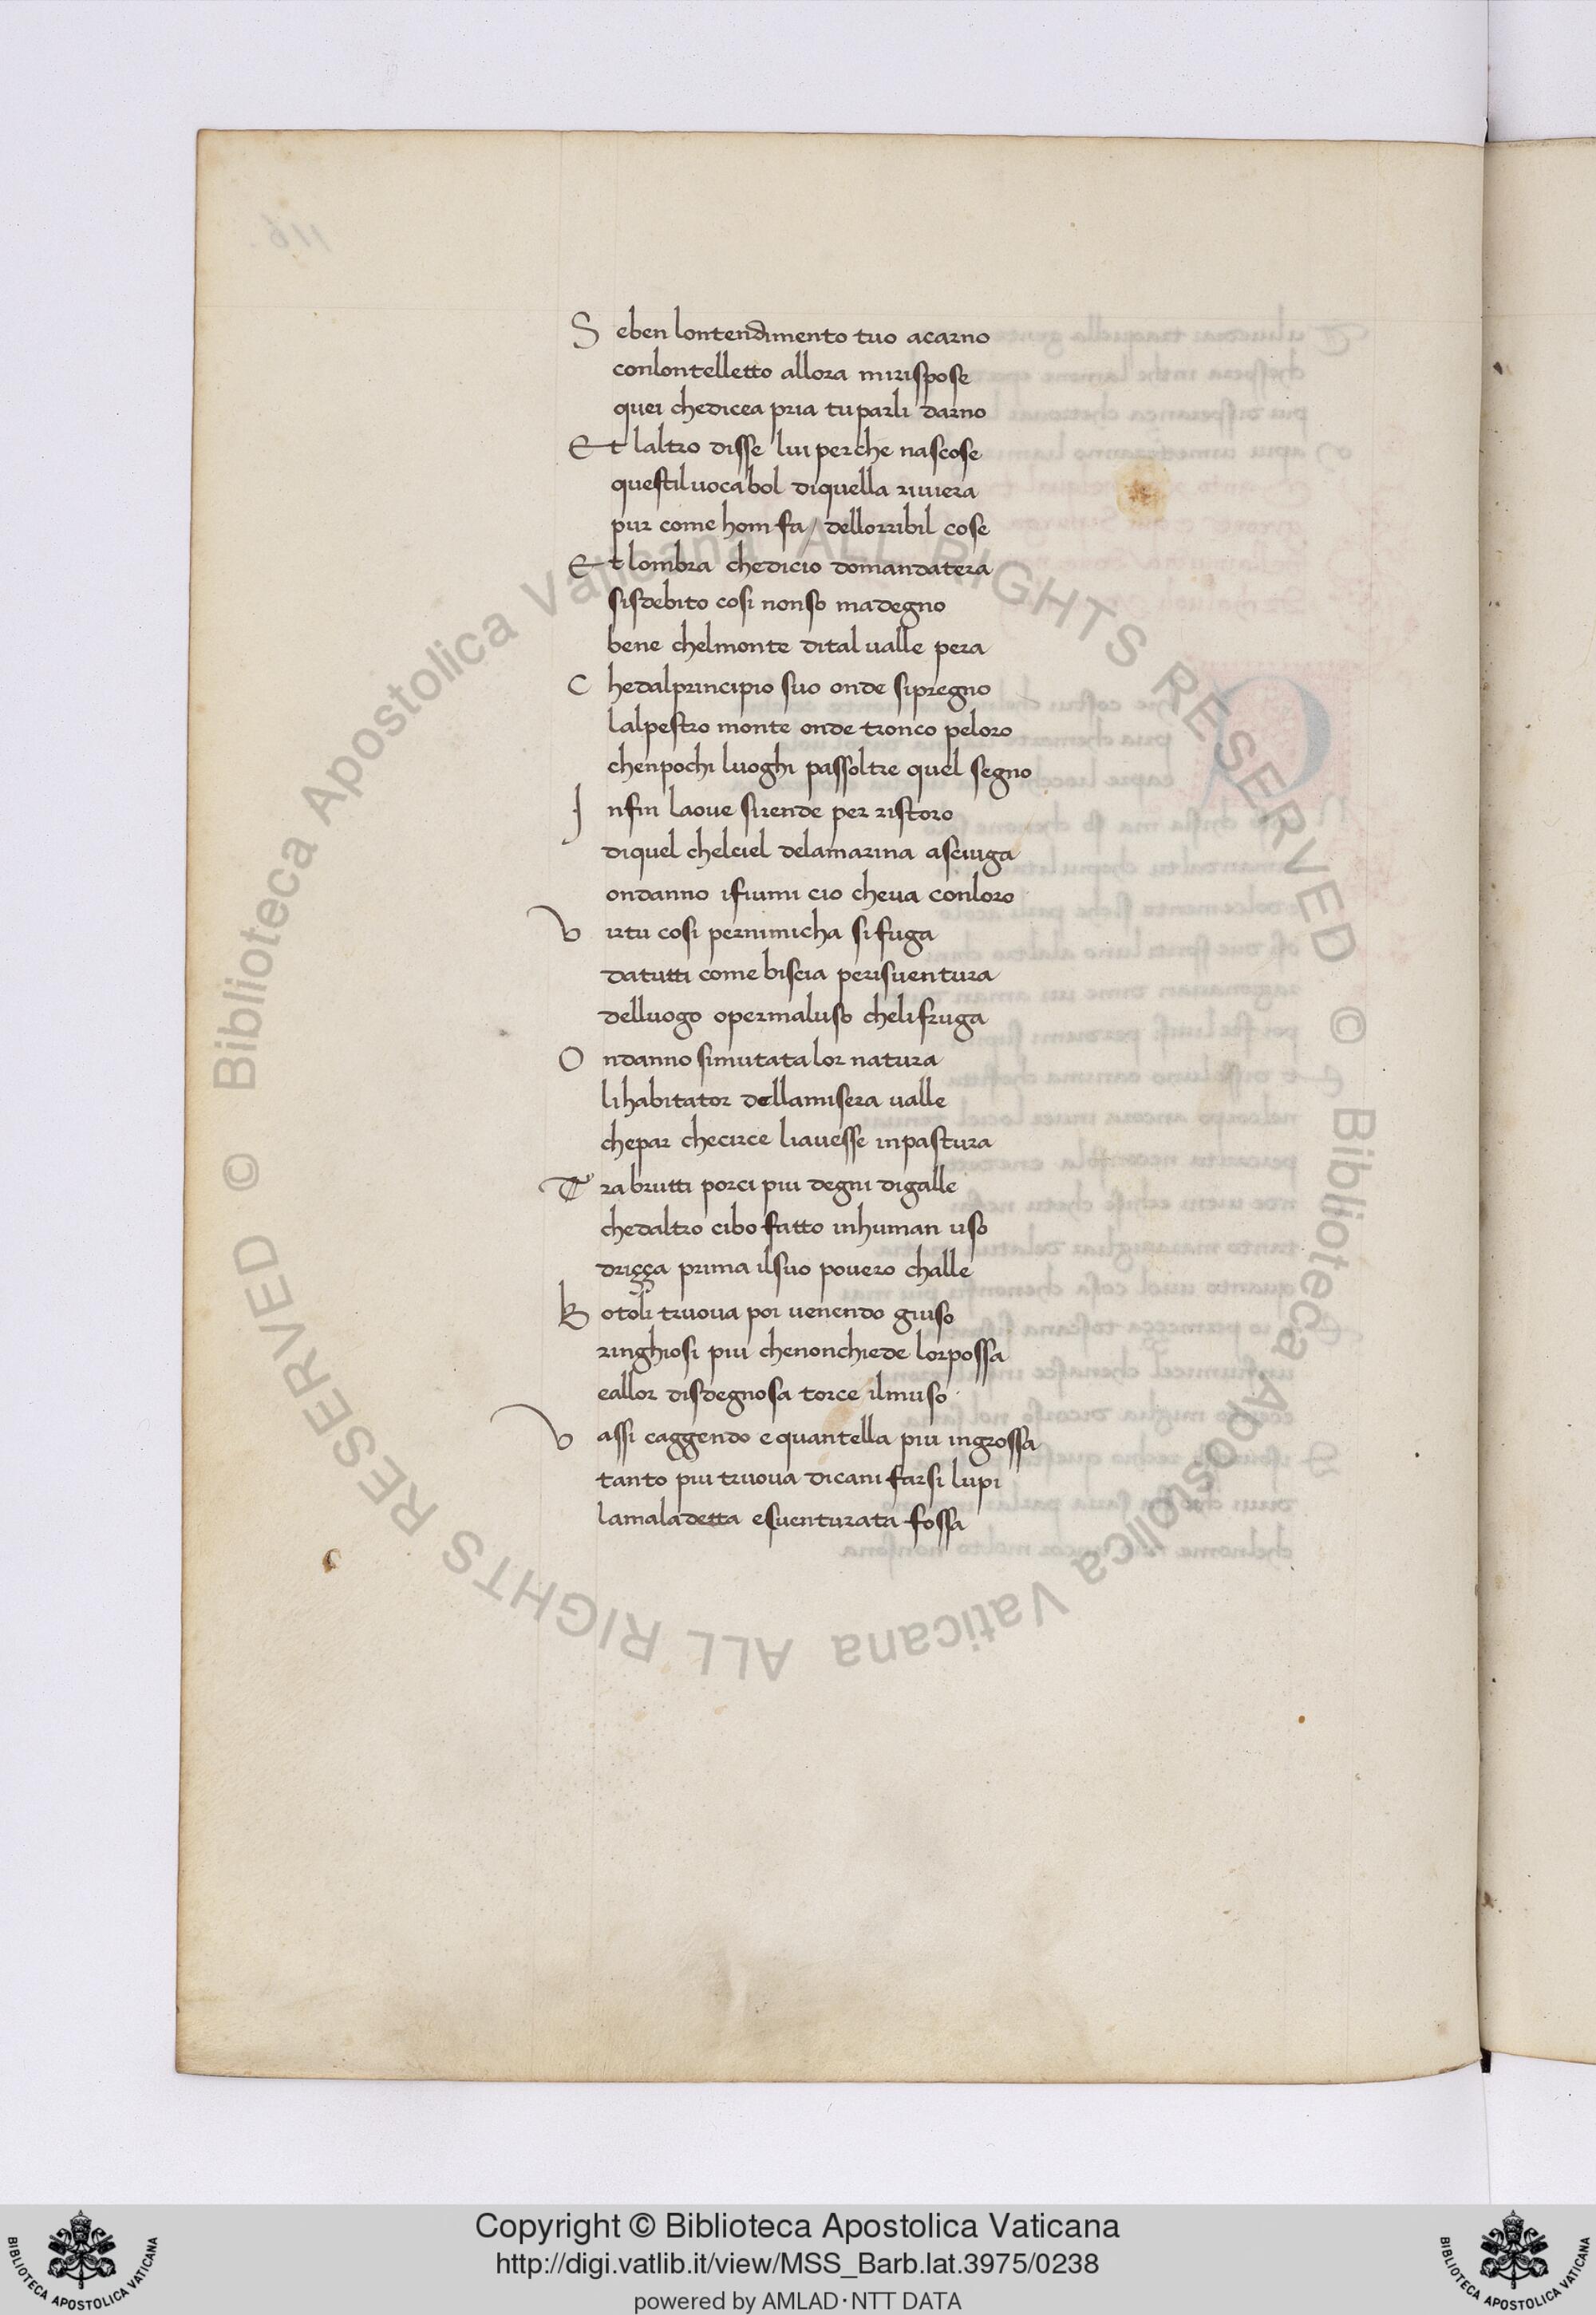 S eben lontendimento tuo acarno
conlontelletto allora mirispose
quei chedicea pria tuparli darno
Et laltro disse lui perche nascose
questiluocabol diquella riuiera
pur come hom fa / dellorribil cose
Et lombra chedicio domandatera
sisdebito cosi nonso madegno
bene chelmonte dital ualle pera
C hedalprincipio suo onde sipregno
lalpestro monte onde tronco peloro
chenpochi luoghi passoltre quel segno
I nfin laoue sirende per ristoro
diquel chelciel delamarina asciuga
ondanno ifiumi cio cheua conloro
V irtu cosi pernimicha sifuga
datutti come biscia perisuentura
delluogo opermaluso chelifruga
O ndanno simutata lor natura
lihabitator dellamisera ualle
chepar checirce liauesse inpastura
T ra brutti porci piu degni digalle
chedaltro cibo fatto inhuman uso
driçça prima ilsuo pouero challe
B otoli truoua poi uenendo giuso
ringhiosi piu chenonchiede lorpossa
eallor disdegnosa torce ilmuso
V assi caggendo equantella piu ingrossa
tanto piu truoua dicani farsi lupi
lamaladetta esuenturata fossa
© Biblioteca Apostolica Vaticana ALL RIGHTS RESERVED
© Biblioteca Apostolica Vaticana ALL RIGHTS RESERVED
Copyright © Biblioteca Apostolica Vaticana
http://digi.vatlib.it/view/MSS_Barb.lat.3975/0238
powered by AMLAD·NTT DATA
BIBLIOTECA APOSTOLICA VATICANA
BIBLIOTECA APOSTOLICA VATICANA